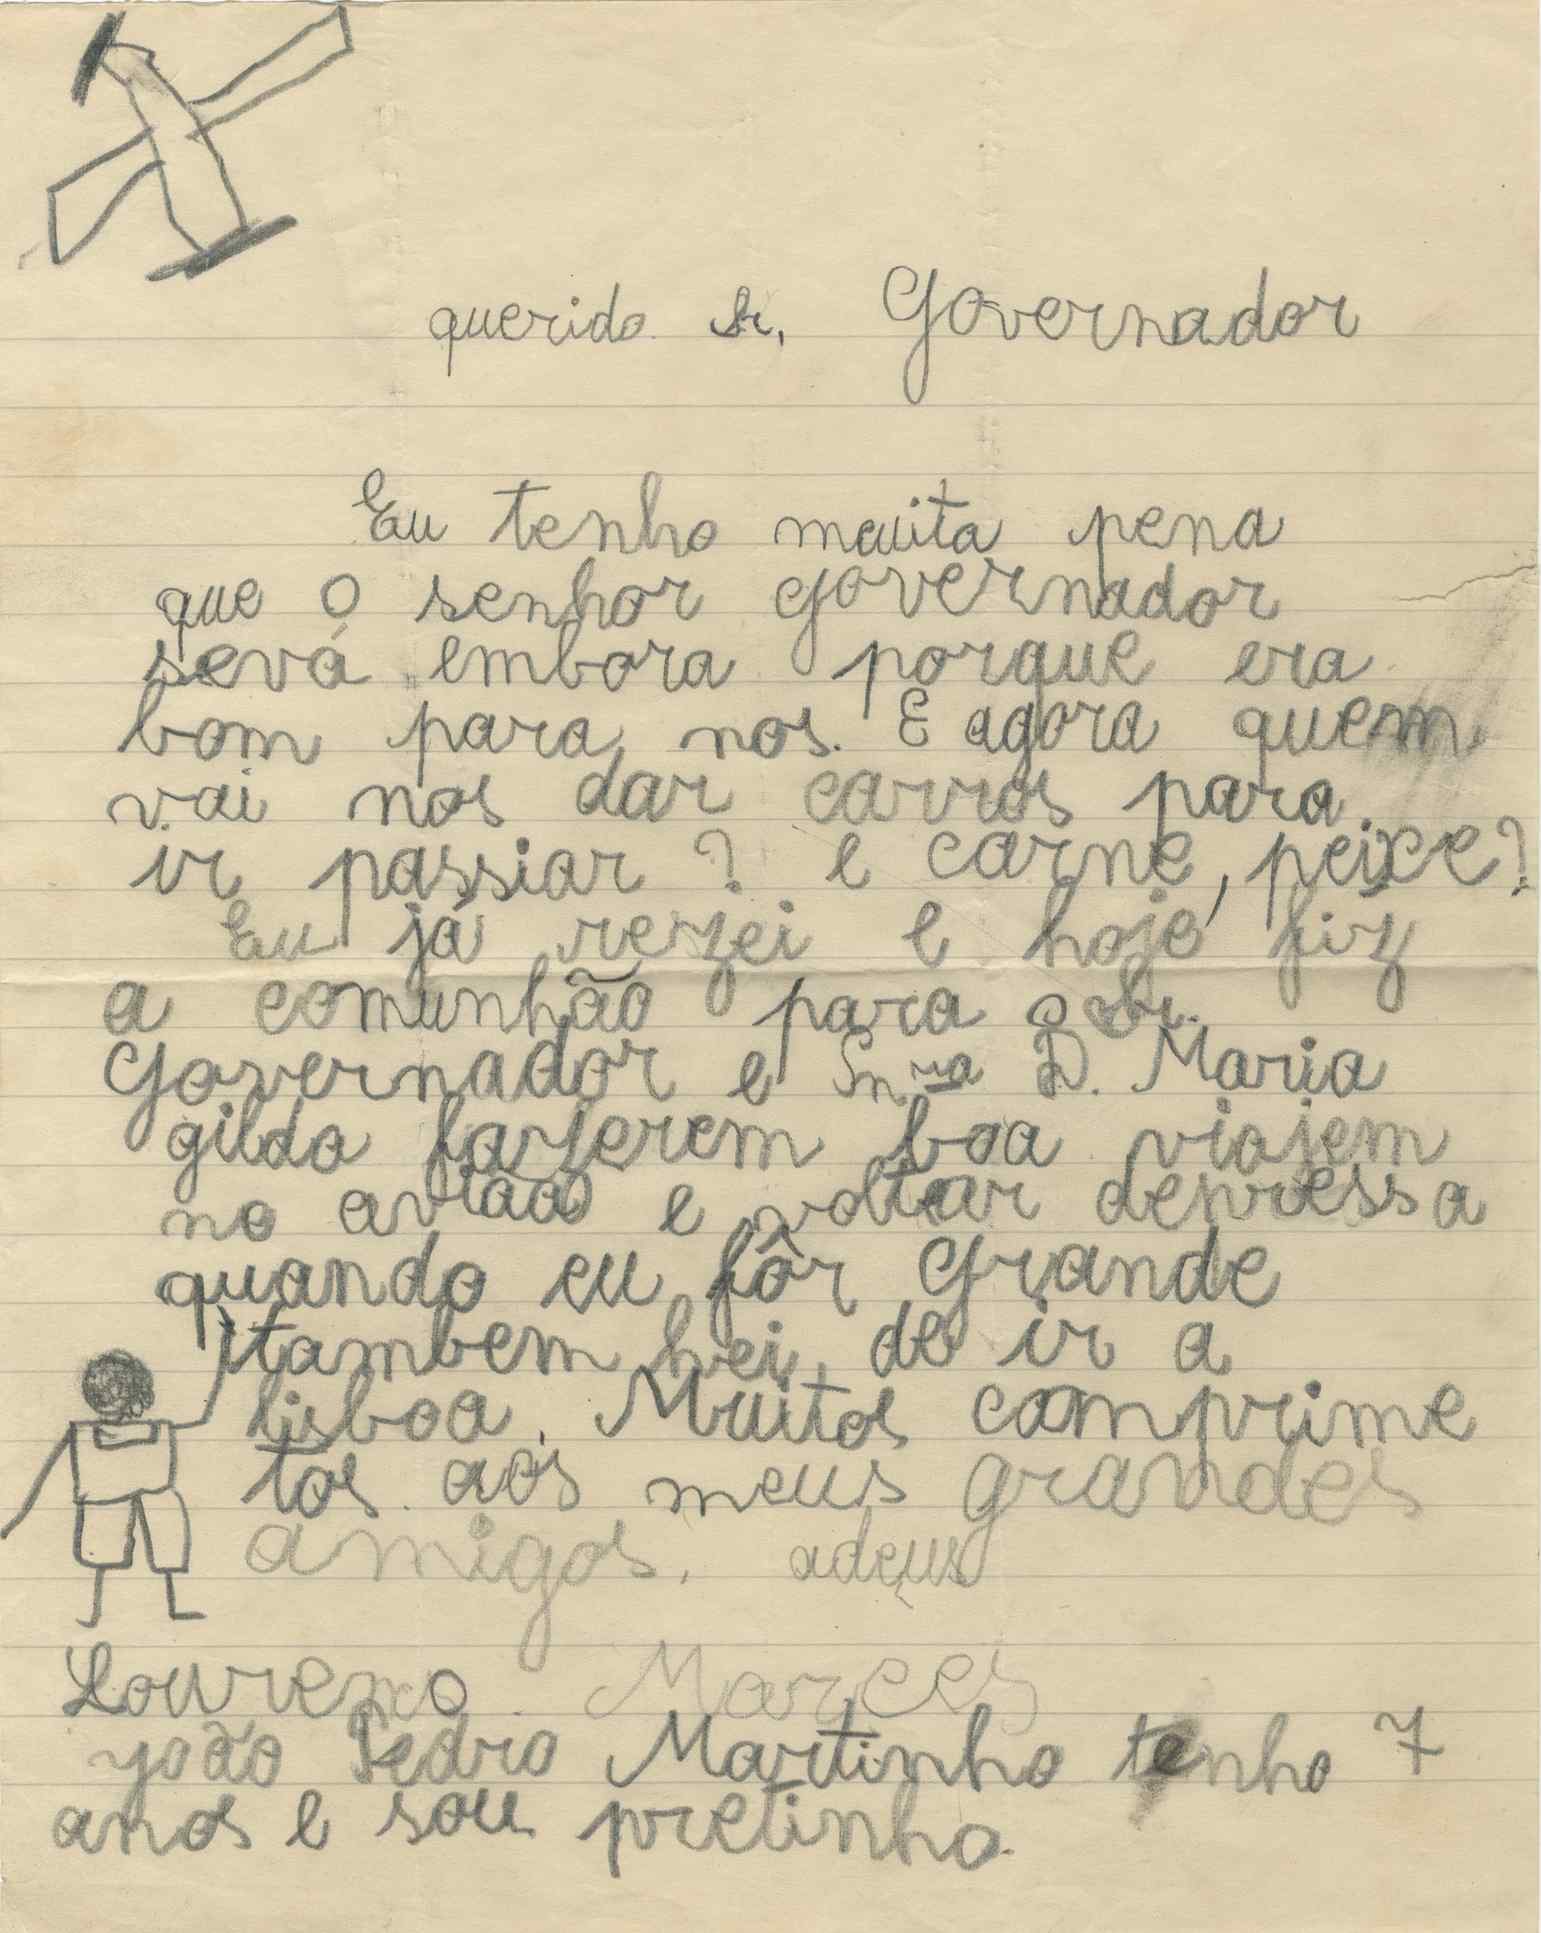 querido Sr. Governador
Eu tenho muita pena
que o senhor governador
sevá embora porque era
bom para nos. E agora quem
vai nos dar carros para
ir passiar? e carne, peixe?
Eu já rezei e hoje fiz
a comunhão para o Sr.
Governador e Snra D. Maria
gilda fazerem boa viajem
no avião e voltar depressa
quando eu fôr grande
tambem hei de ir a
lisboa. Muitos comprime
tos aos meus grandes
amigos. adeus
Lourenço Marces
João Pedro Martinho tenho 7
anos e sou pretinho.